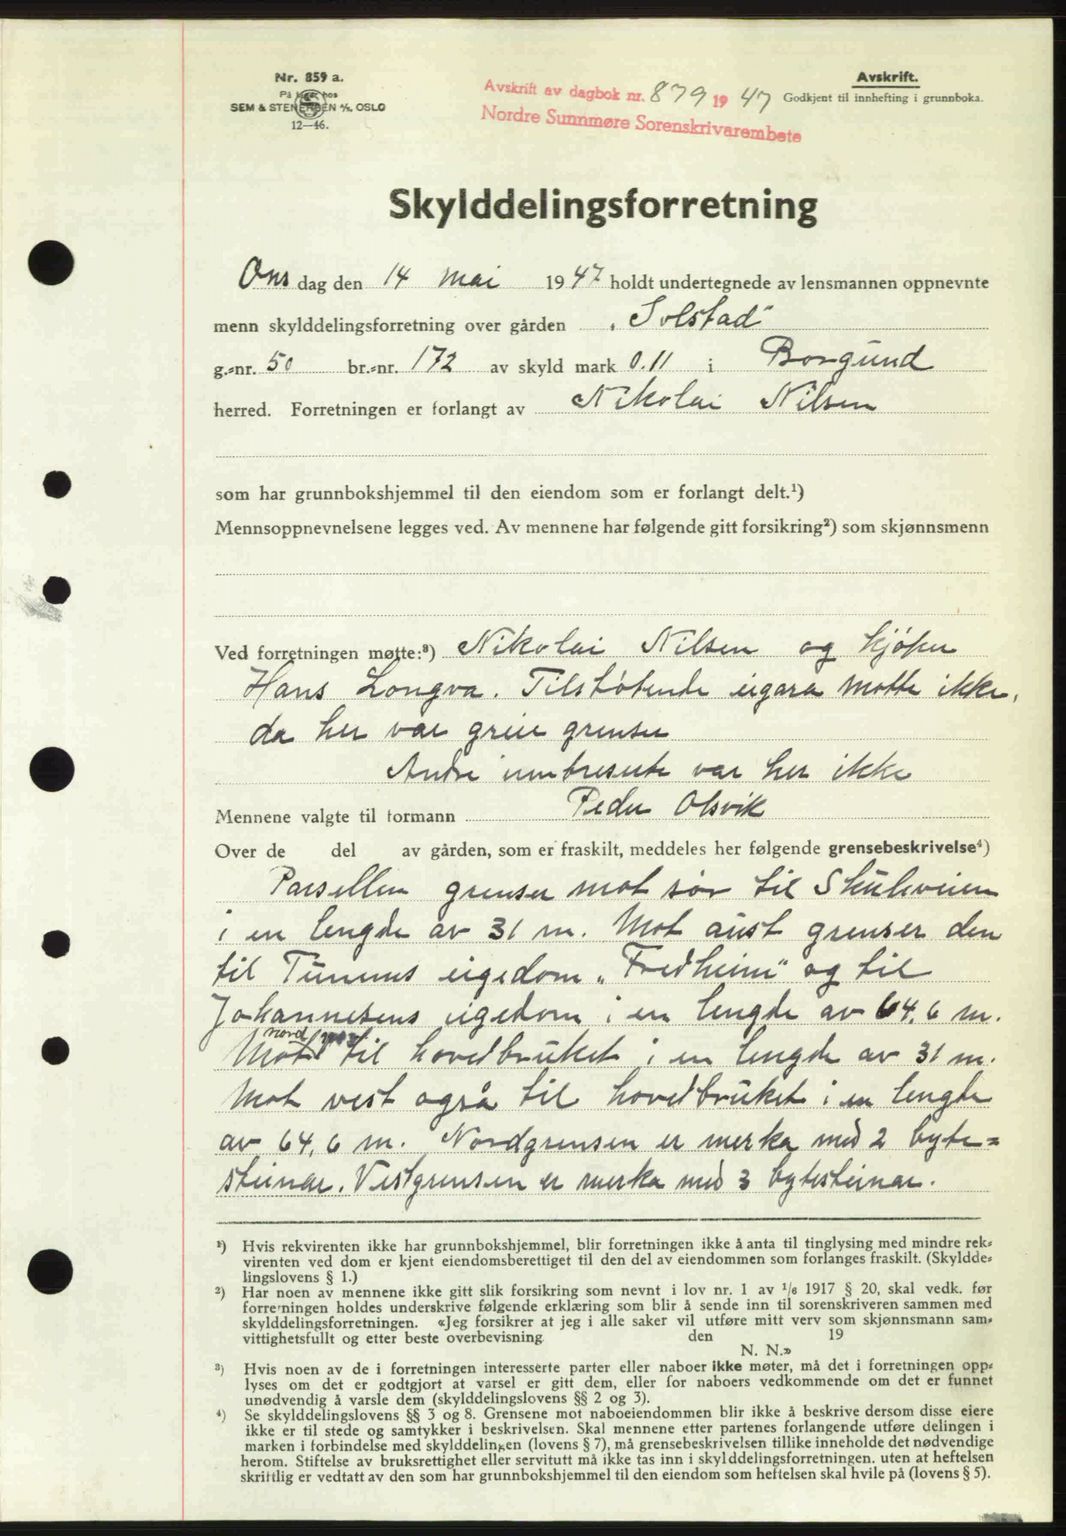 Nr. 859 a.
På lager hos
SEM & STENERSEN A/S, OSLO
12—46.
Avskrift av dagbok nr. 879 1947
Nordre Sunnmøre Sorenskrivarembete
Avskrift.
Godkjent til innhefting i grunnboka.
Skylddelingsforretning
Ons dag den 14 mai 1947 holdt undertegnede av lensmannen oppnevnte
menn skylddelingsforretning over gården „Solstad"
g.-nr. 50 br.-nr. 172 av skyld mark 0.11 i Borgund
herred. Forretningen er forlangt av Nikolai Nilsen
som har grunnbokshjemmel til den eiendom som er forlangt delt.¹)
Mennsoppnevnelsene legges ved. Av mennene har følgende gitt forsikring²) som skjønnsmenn
Ved forretningen møtte:³) Nikolai Nilsen og kjøper
Hans Longva. Tilstøtende eigara møtte ikke,
da her var greie grenser
Andre var her ikke
Mennene valgte til formann Peder Olsvik
Over de del av gården, som er fraskilt, meddeles her følgende grensebeskrivelse⁴)
Parsellen grenser mot sør til Skuleveien
i en lengde av 31 m. Mot aust grenser den
til eigedom „Fredheim" og til
Johannesens eigedom i en lengde av 64,6 m.
Mot nord til hovedbruket i en lengde av 31 m.
Mot vest også til hovedbruket i en lengde
av 64,6 m. Nordgrensen er merka med 2 byte=
steinar. Vestgrensen er merka med 3 bytesteinar.
¹) Hvis rekvirenten ikke har grunnbokshjemmel, blir forretningen ikke å anta til tinglysing med mindre rek-
virenten ved dom er kjent eiendomsberettiget til den del av eiendommen som forlanges fraskilt. (Skyldde-
lingslovens § 1.)
²) Har noen av mennene ikke gitt slik forsikring som nevnt i lov nr. 1 av 1/6 1917 § 20, skal vedk. før
forretningen holdes underskrive følgende erklæring som blir å sende inn til sorenskriveren sammen med
skylddelingsforretningen. «Jeg forsikrer at jeg i alle saker vil utføre mitt verv som skjønnsmann sam-
vittighetsfullt og etter beste overbevisning den 19
N. N.»
³) Hvis noen av de i forretningen interesserte parter eller naboer ikke møter, må det i forretningen opp-
lyses om det er godtgjort at varsel er gitt dem, eller for naboers vedkommende om det er funnet
unødvendig å varsle dem (skylddelingslovens §§ 2 og 3).
⁴) Se skylddelingslovens §§ 3 og 8. Grensene mot naboeiendommen blir ikke å beskrive dersom disse eiere
ikke er til stede og samtykker i beskrivelsen. Skal mennene etter partenes forlangende utføre delingen i
marken i forbindelse med skylddelingen (lovens § 7), må grensebeskrivelsen tillike inneholde det nødvendige
herom. Stiftelse av bruksrettighet eller servitutt må ikke tas inn i skylddelingsforretningen, uten at heftelsen
skriftlig er vedtatt av den som har grunnbokshjemmel til den eiendom som heftelsen skal hvile på (lovens § 5).